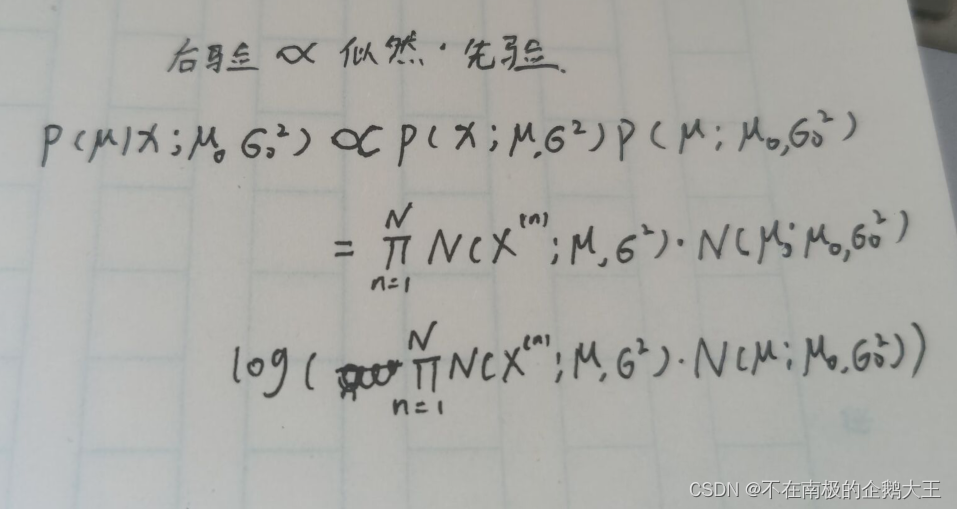 后验 ∝ 似然·先验.
P(μ|X;μ₀ σ₀²) ∝ P(X;μ,σ²)P(μ;μ₀,σ₀²)
= ∏ₙ₌₁ᴺ N(X⁽ⁿ⁾;μ,σ²)·N(μ;μ₀,σ₀²)
log(∏ₙ₌₁ᴺ N(X⁽ⁿ⁾;μ,σ²)·N(μ;μ₀,σ₀²))
CSDN @不在南极的企鹅大王